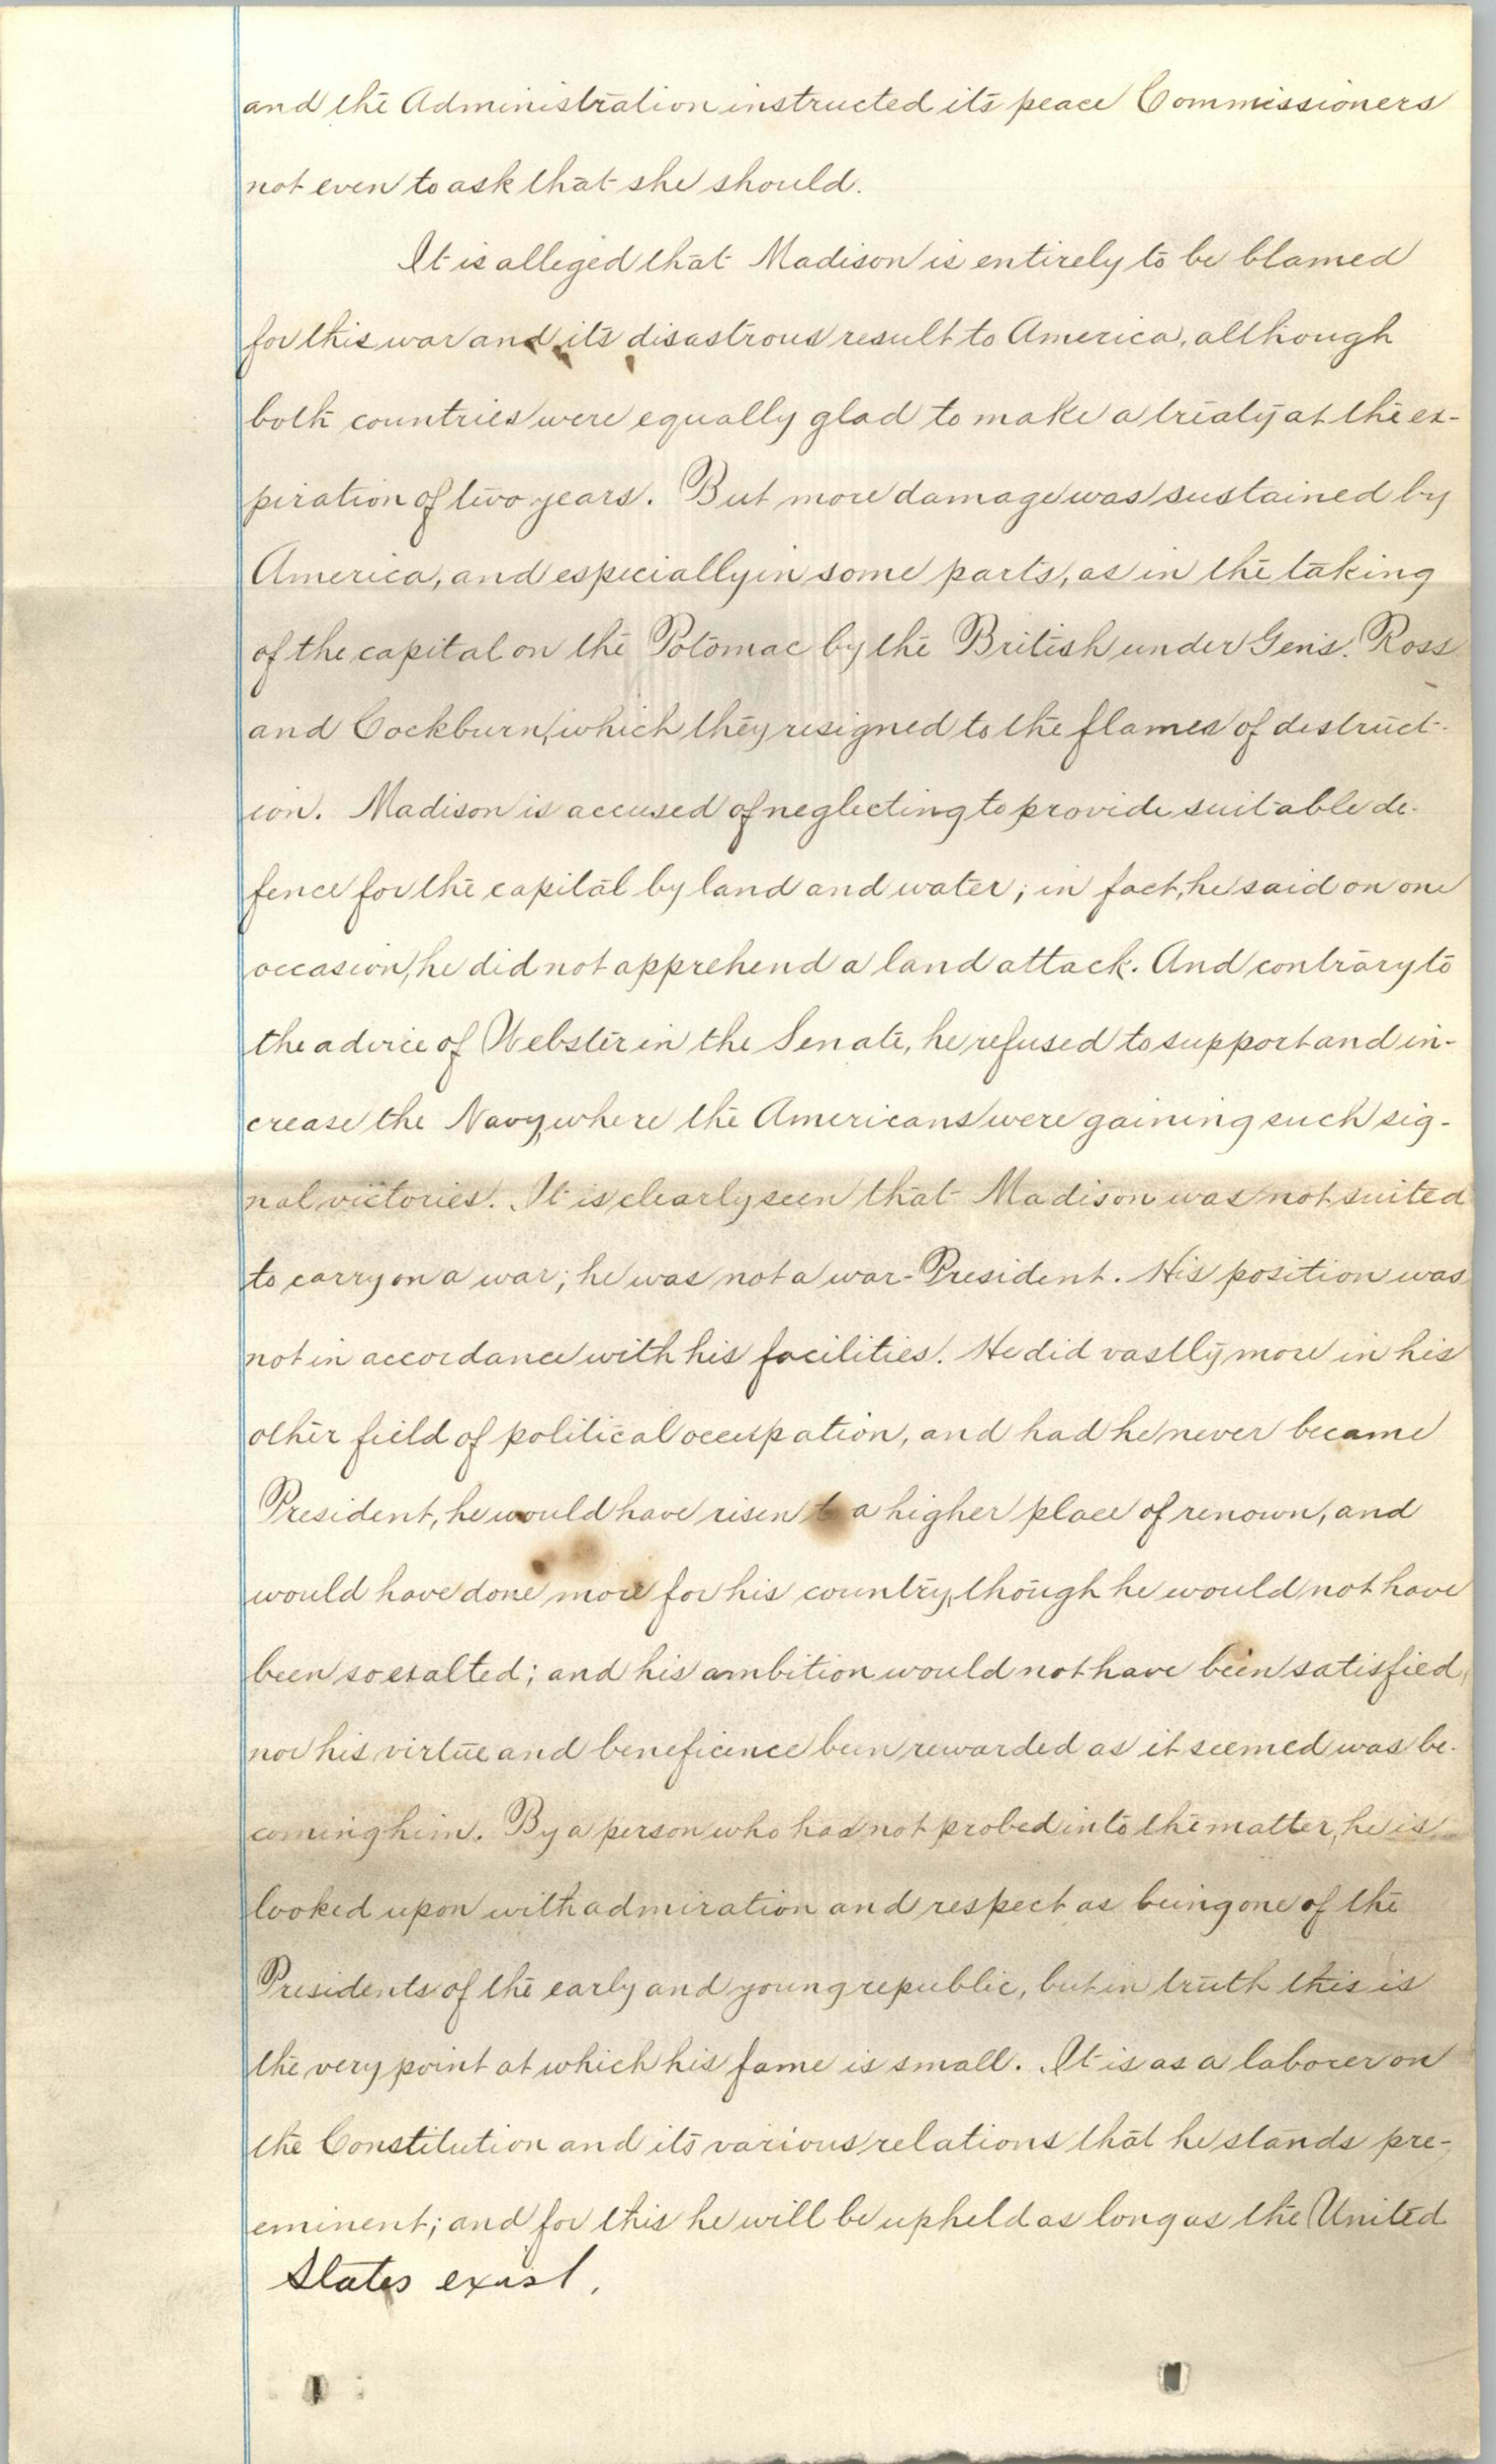 and the Administration instructed its peace Commissioners
not even to ask that she should.
It is alleged that Madison is entirely to be blamed
for this war and its disastrous result to America, although
both countries were equally glad to make a treaty at the ex-
piration of two years. But more damage was sustained by
America, and especially in some parts, as in the taking
of the capital on the Potomac by the British under Gens. Ross
and Cockburn, which they resigned to the flames of destruct-
ion. Madison is accused of neglecting to provide suitable de-
fence for the capital by land and water; in fact, he said on one
occasion, he did not apprehend a land attack. And contrary to
the advice of Webster in the Senate, he refused to support and in-
crease the Navy, where the Americans were gaining such sig-
nal victories. It is clearly seen that Madison was not suited
to carry on a war; he was not a war-President. His position was
not in accordance with his facilities. He did vastly more in his
other field of political occupation, and had he never became
President, he would have risen to a higher place of renown, and
would have done more for his country, though he would not have
been so exalted; and his ambition would not have been satisfied,
nor his virtue and beneficence been rewarded as it seemed was be-
coming him. By a person who has not probed into the matter, he is
looked upon with admiration and respect as being one of the
Presidents of the early and young republic, but in truth this is
the very point at which his fame is small. It is as a laborer on
the Constitution and its various relations that he stands pre-
eminent; and for this he will be upheld as long as the United
States exist.